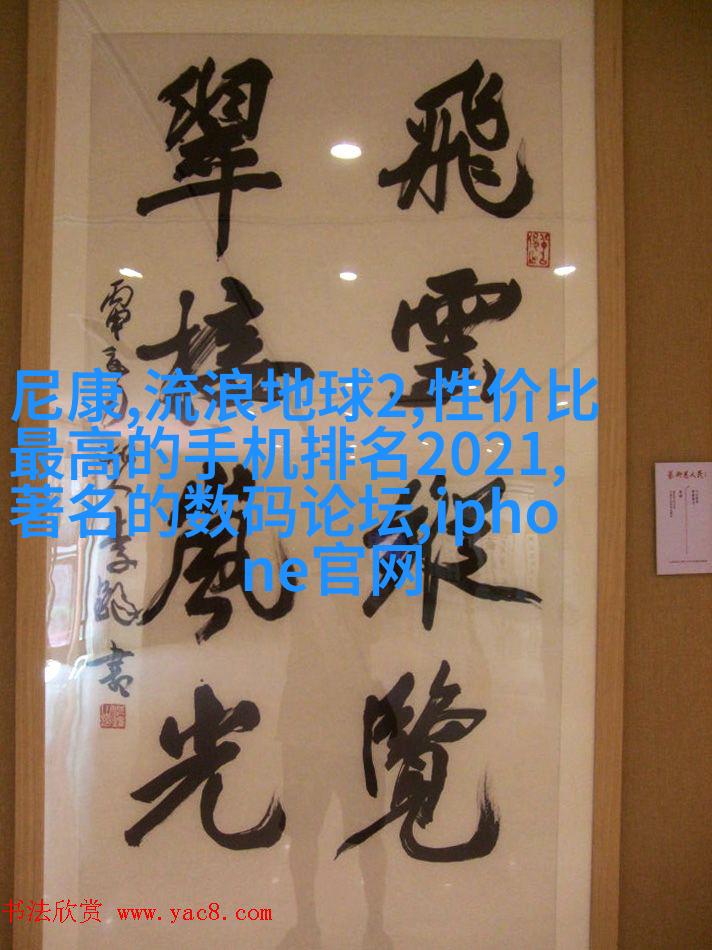 飛雲縱覽
翠風光
李鐸書
尼康,流浪地球2,性价比
最高的手机排名2021,
著名的数码论坛,ipho
ne官网
书法欣赏 www.yac8.com